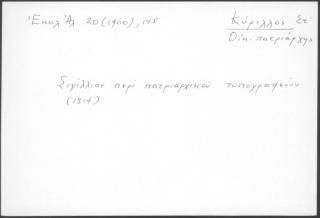 Ἐκκλ. Ἀλ. 20 (1900), 145
Κύριλλος Ϛτ´
Οἰκ. πατριάρχης
Σιγίλλιον περὶ πατριαρχικοῦ τυπογραφείου
(1814)